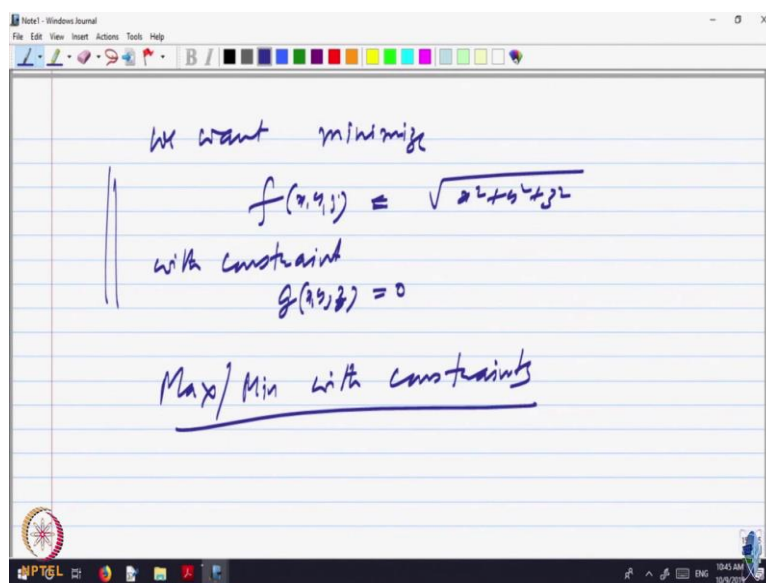 Note1 - Windows Journal
File Edit View Insert Actions Tools Help
B I
We want minimize
f(x,y,z) = √x²+y²+z²
with constraint
g(x,y,z) = 0
Max/Min with constraints
NPTEL
ENG
10:45 AM
10/9/2019